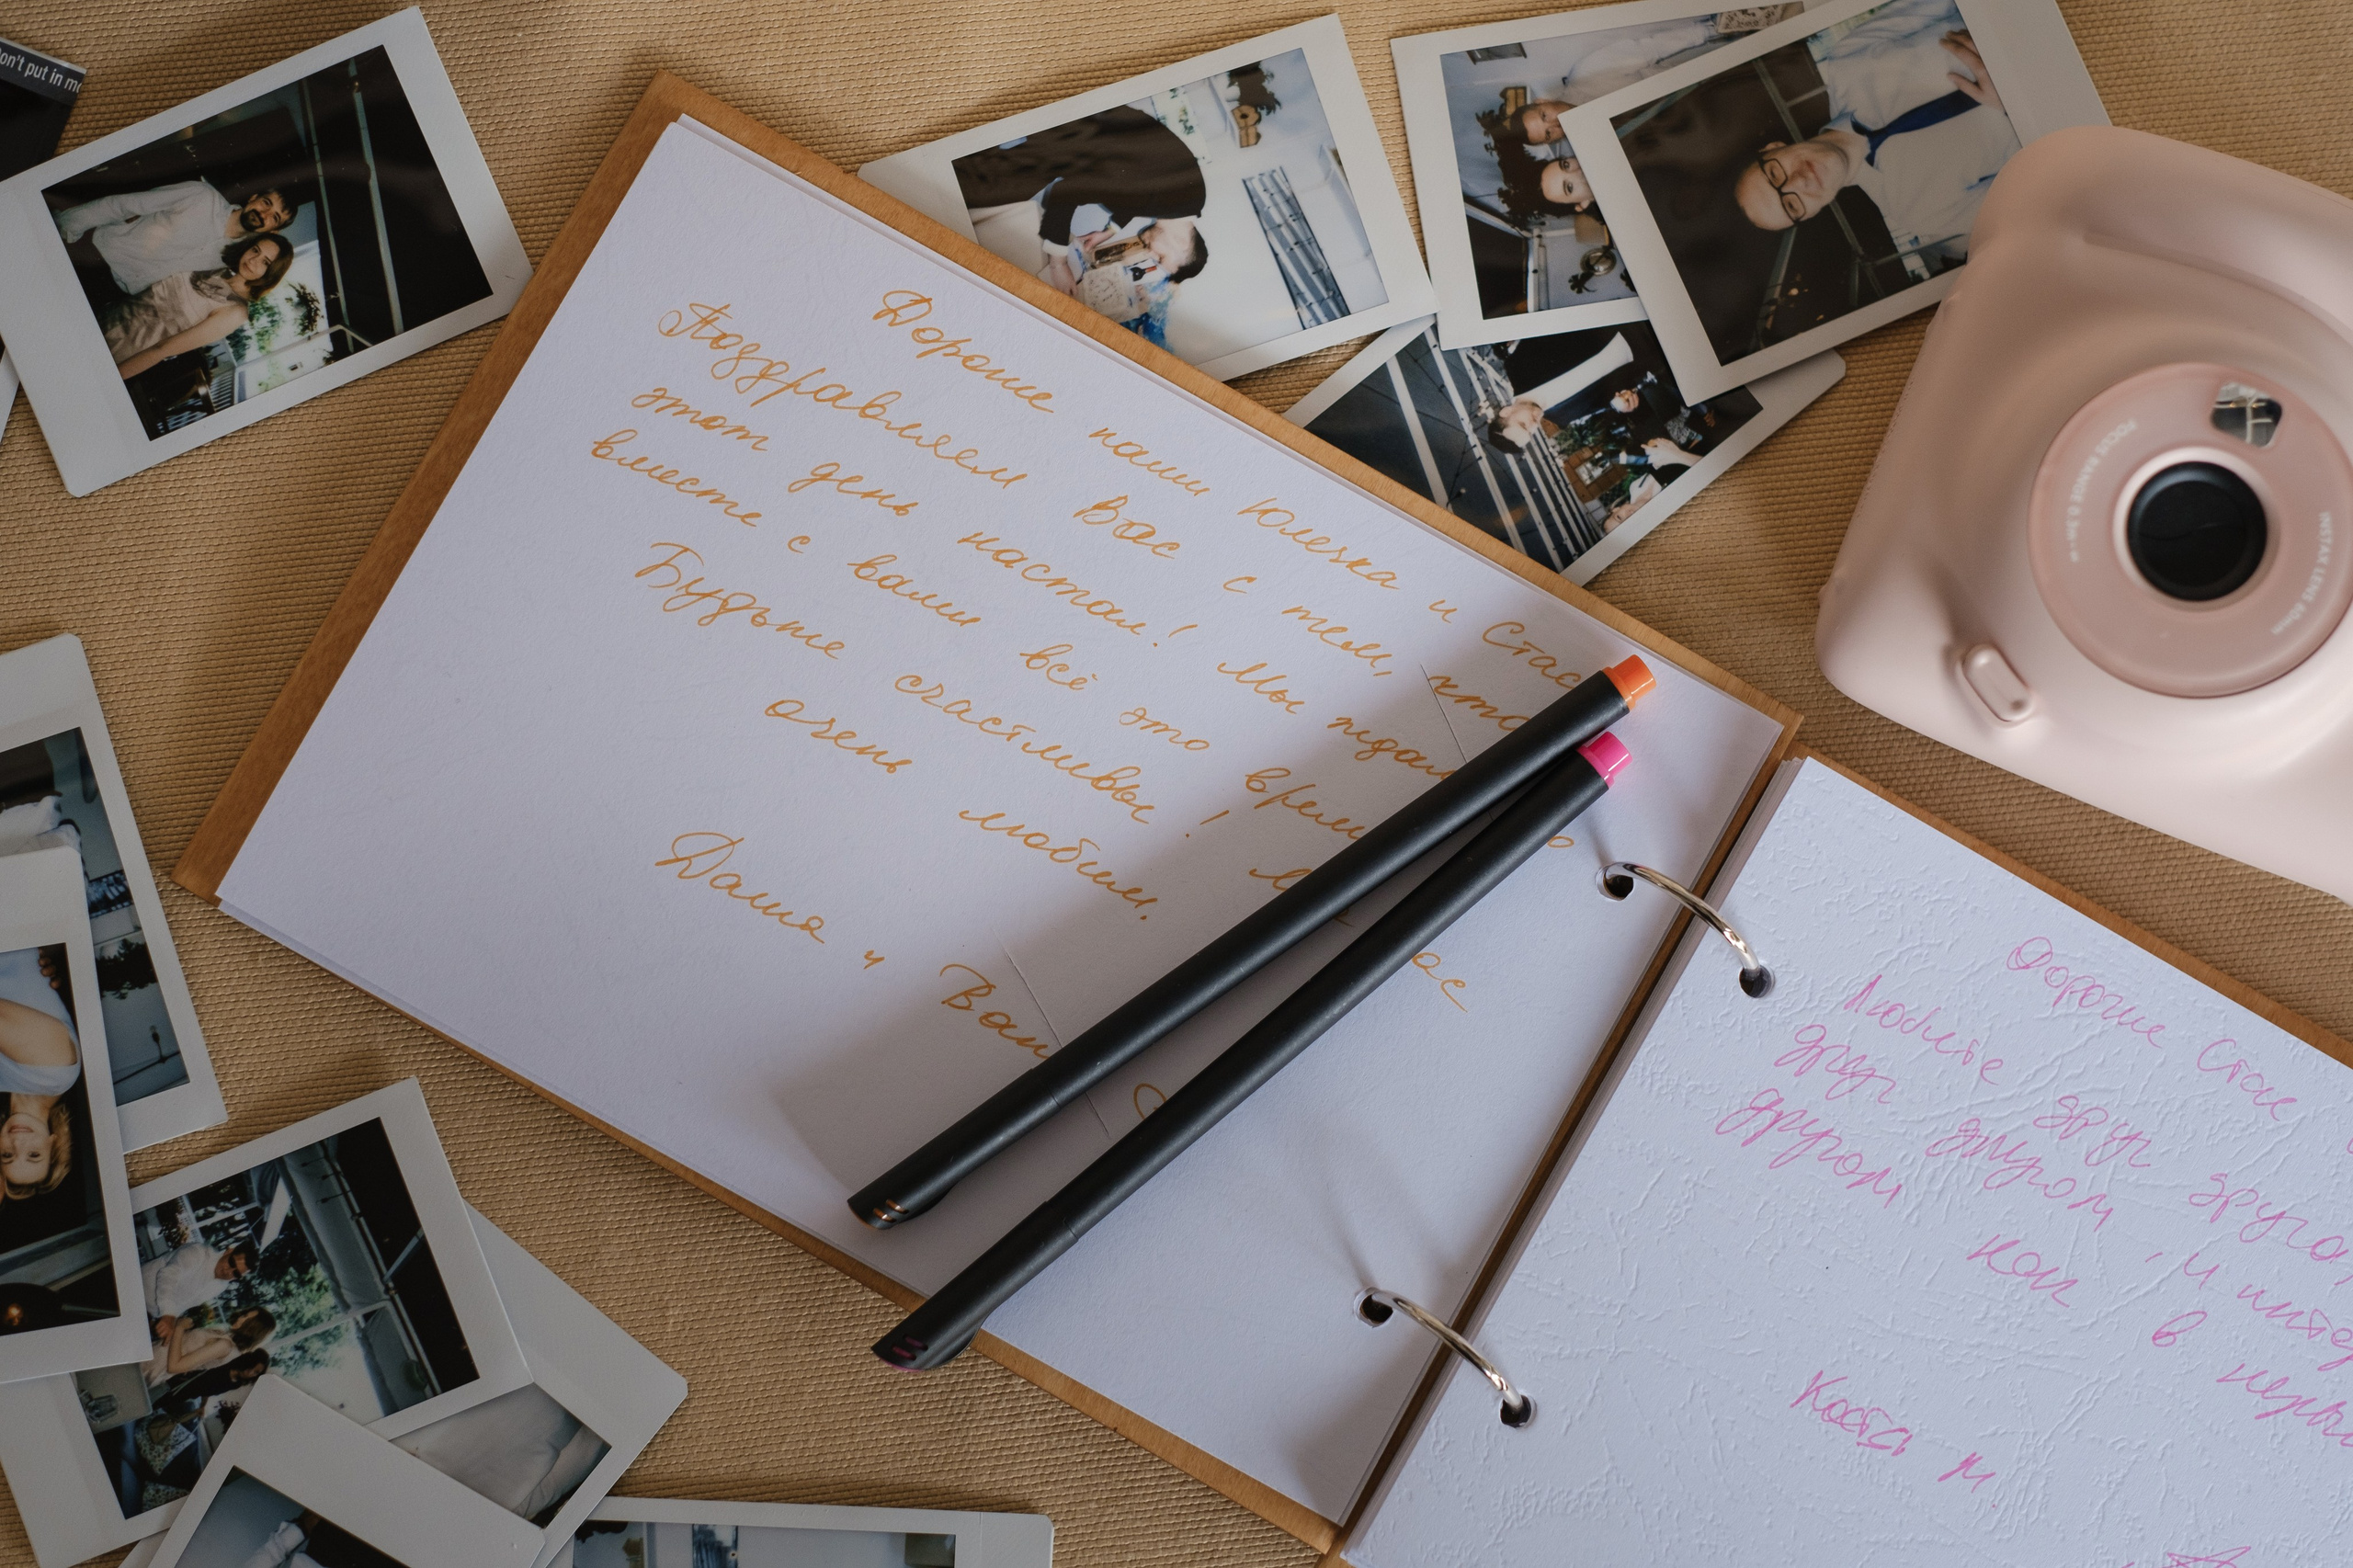 Дорогие наши Юлечка и Стас
Поздравляем Вас с тем, что
этот день настал! Мы ждали
вместе с вами всё это время
Будьте счастливы! Мы вас
очень любим.
Даша и Ваня
Дорогие Стас
Любите друг друга,
друг другом, и
другом как в
Костя М.
FOCUS RANGE 0.3m-∞
INSTAX LENS 60mm
on't put in mo